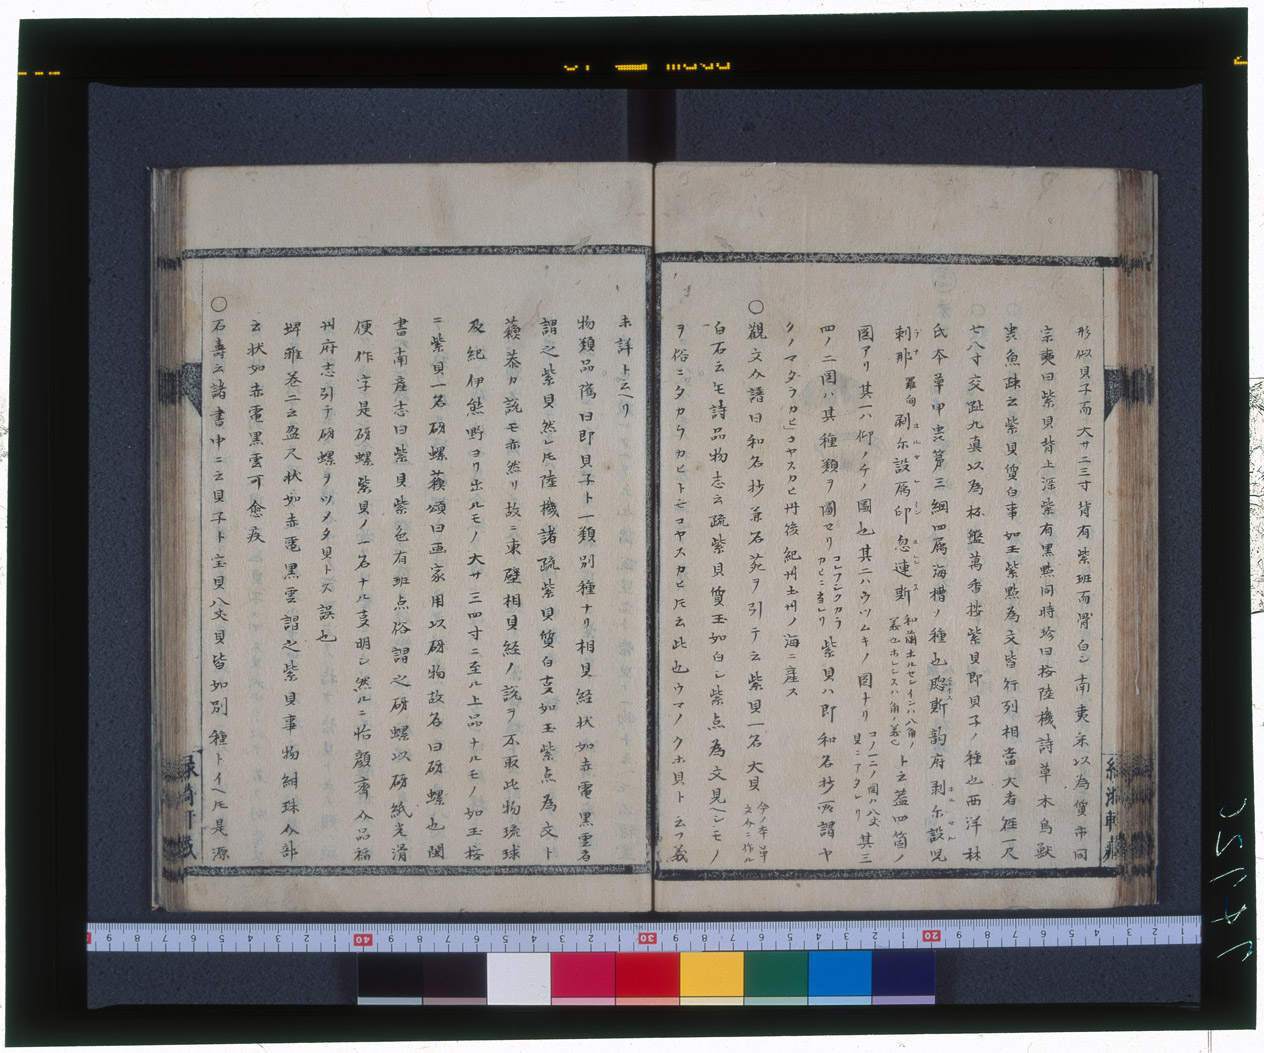 形似貝子而大サ二三寸背有紫班而滑白シ南夷采以為貨市同
宗奭曰紫貝背上深紫有黒點同時珍曰按陸機詩草木鳥獣
虫魚疏云紫貝質白事如玉紫點為文皆行列相當大者径一尺
七八寸交趾九真以為杯盤萬香按紫貝即貝子ノ種也西洋林
氏本草甲虫第三綱四属海槽ノ種也 斯韵府剥尓設児
剌那 羅甸 剥尓設属印忽連斯 和蘭土ルセレインハ八角ノ義也ホレンスハ角ノ義也 ト云蓋四箇ノ
図アリ其一ハ仰ノケノ圖也其二ハウツムキノ図ナリ コノ一二ノ図ハ八文貝ニアタレリ 其三
四ノ二図ハ其種類ヲ圖セリ コレフシクカラカヒニ當レリ 紫貝ハ即和名抄所謂ヤ
クノマダラカヒコヤスカヒ丹後紀州土州ノ海ニ産ス
〇觀文介譜曰和名抄兼名苑ヲ引テ云紫貝一名大貝 今ノ本草文介ニ作ル
白石云毛詩品物志云疏紫貝質玉如白シ紫点為文見ヘシモノ
ヲ俗ニタカラカヒトモコヤスカヒ圧云此也ウマノクホ貝ト云フ義
未詳ト云ヘリ
物類品隲曰即貝子ト一類別種ナリ相貝経状如赤電黒雲者
謂之紫貝然レ圧陸機諸疏紫貝質白支如玉紫点為文ト
蘓恭カ説モ亦然リ故ニ東壁相貝経ノ説ヲ不取此物琉球
及紀伊熊野ヨリ出ルモノ大サ三四寸ニ至ル上品ナルモノ如玉按
ニ紫貝一名砑螺蘓頌曰画家用以砑物故名曰砑螺也閩
書南産志曰紫貝紫色有班点俗謂之砑螺以砑紙光滑
便作字是砑螺紫貝ノ一名ナル支明シ然ルニ怡顔斎介品福
州府志引テ砑螺ヲツメタ貝トス誤也
埤雅巻二云盈尺状如赤電黒雲謂之紫貝事物紺珠介部
云状如赤電黒雲可愈疾
〇石壽云諸書中ニ云貝子ト宝貝八文貝皆如別種トイヘ圧是源